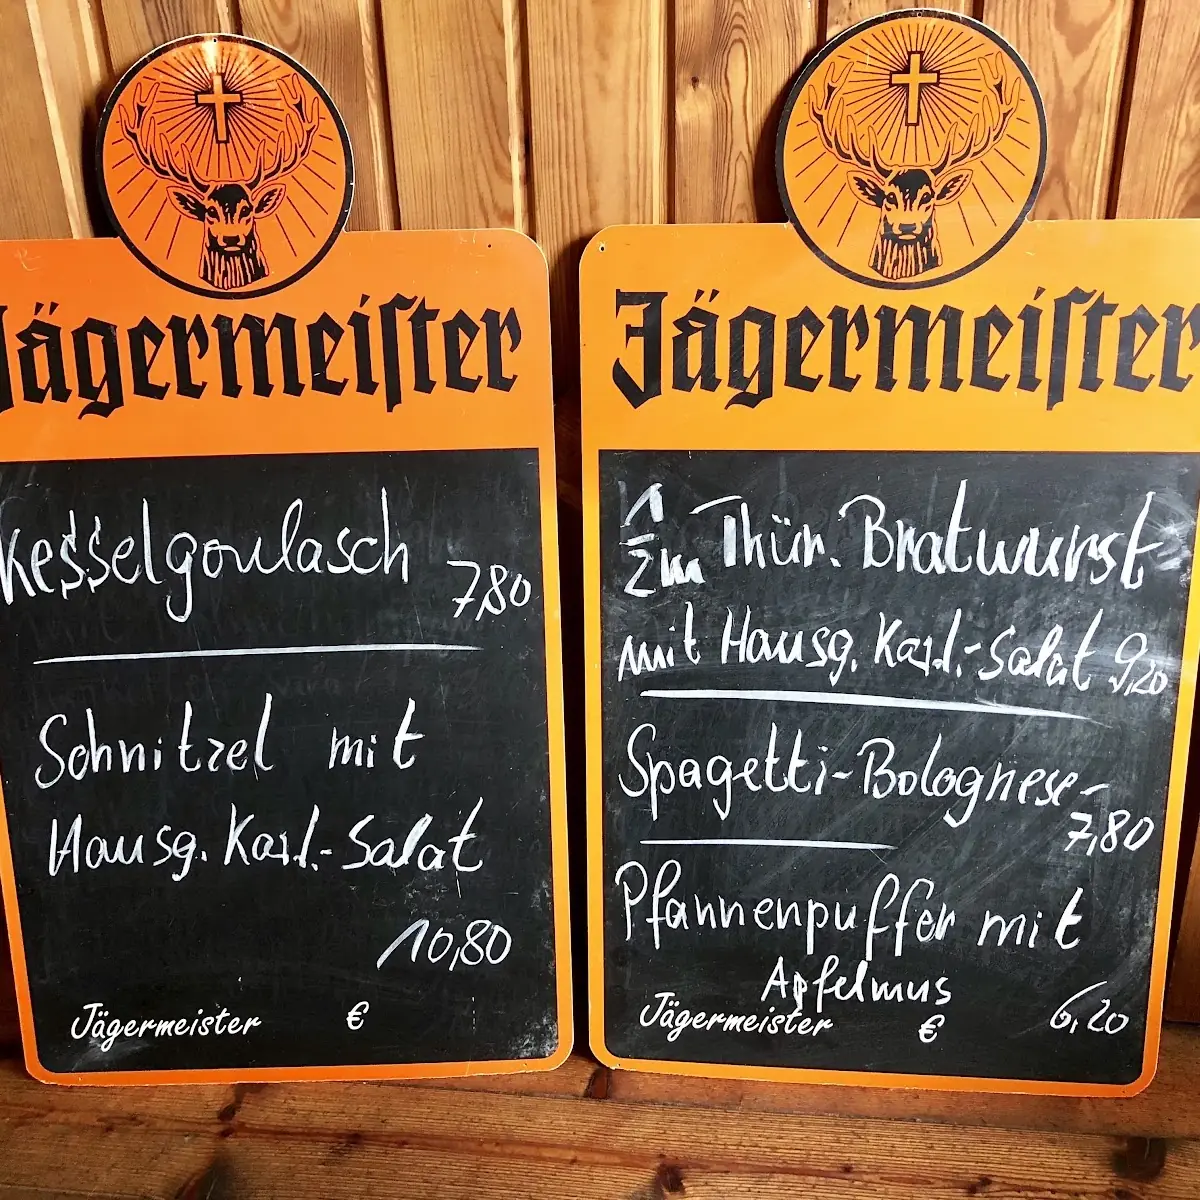 Jägermeister
Kesselgoulasch 7,80
Schnitzel mit
Hausg. Kart.-Salat
10,80
Jägermeister €
Jägermeister
1/2m Thür. Bratwurst
mit Hausg. Kart.-Salat 9,20
Spagetti-Bolognese-
7,80
Pfannenpuffer mit
Apfelmus
6,20
Jägermeister €